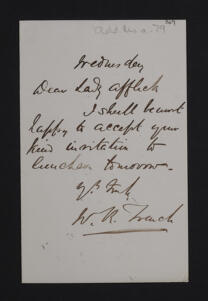 Wednesday
Dear Lady Affleck
I shall be most
happy to accept your
kind invitation to
luncheon tomorrow.
W. R. French